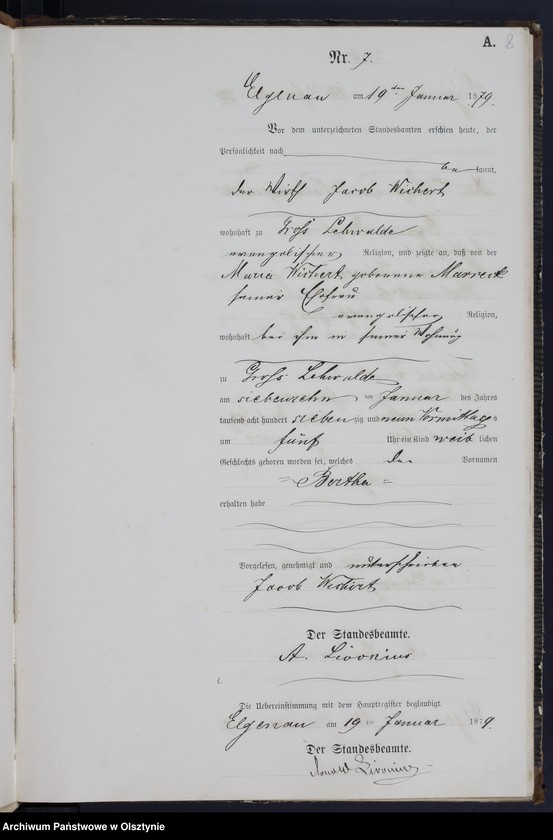 A. 8
Nr. 7.
Elgenau am 19ten Januar 1879.
Vor dem unterzeichneten Standesbeamten erschien heute, der
Persönlichkeit nach
be kannt,
der Wirth Jacob Wichert
wohnhaft zu Groß Lehwalde
evangelischer Religion, und zeigte an, daß von der
Maria Wichert geborenen
seiner Ehefrau
evangelischer Religion,
wohnhaft bei ihm in seiner Wohnung
zu Groß Lehwalde
am siebenzehn ten Januar des Jahres
tausend acht hundert sieben zig und neun Vormittags
um fünf Uhr ein Kind weib lichen
Geschlechts geboren worden sei, welches den Vornamen
= Bertha =
erhalten habe
Vorgelesen, genehmigt und unterschrieben
Jacob Wichert
Der Standesbeamte.
A. Livonius
Die Uebereinstimmung mit dem Hauptregister beglaubigt
Elgenau am 19 ten Januar 1879.
Der Standesbeamte.
Livonius
Archiwum Państwowe w Olsztynie